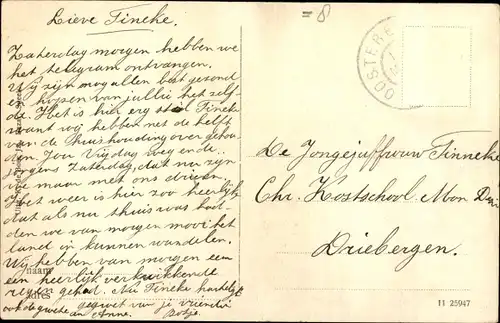 Lieve Tineke.
Zaterdag morgen hebben we
het telegram ontvangen.
Wij zijn nog allen best gezond
en hopen van jullie het zelf-
de. Het is hier erg stil Tineke
want wij hebben met de helft
van de huishouding over gehou-
den. Jou Vrijdag
Zaterdag, dat nu zijn
we maar met ons drieën.
Het weer is hier zoo heerlijk
dat als nu thuis was had-
den we van morgen mooi het
land in kunnen wandelen.
Wij hebben van morgen een
een heerlijk verkwikkende
regen gehad. Nu Tineke hartelijk
gegroet van je vriendin
Anne. Botje.
naam
adres
= 8
OOSTERBE
De Jongejuffrouw Tinneke
Chr. Kostschool Mon
Driebergen.
11 25947